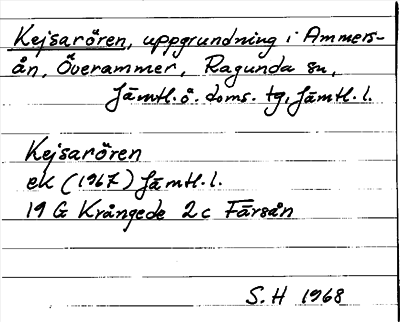 Kejsarören, uppgrundning i Ammers-
ån, Överammer, Ragunda sn,
Jämtl. ö. doms. tg, Jämtl. l.
Kejsarören
ek (1967) Jämtl. l.
19 G Krångede 2c Färsån
S.H 1968